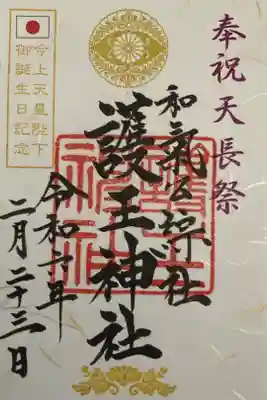 奉祝天長祭
和氣公綜社
護王神社
令和 年
二月二十三日
今上天皇陛下
御誕生日記念